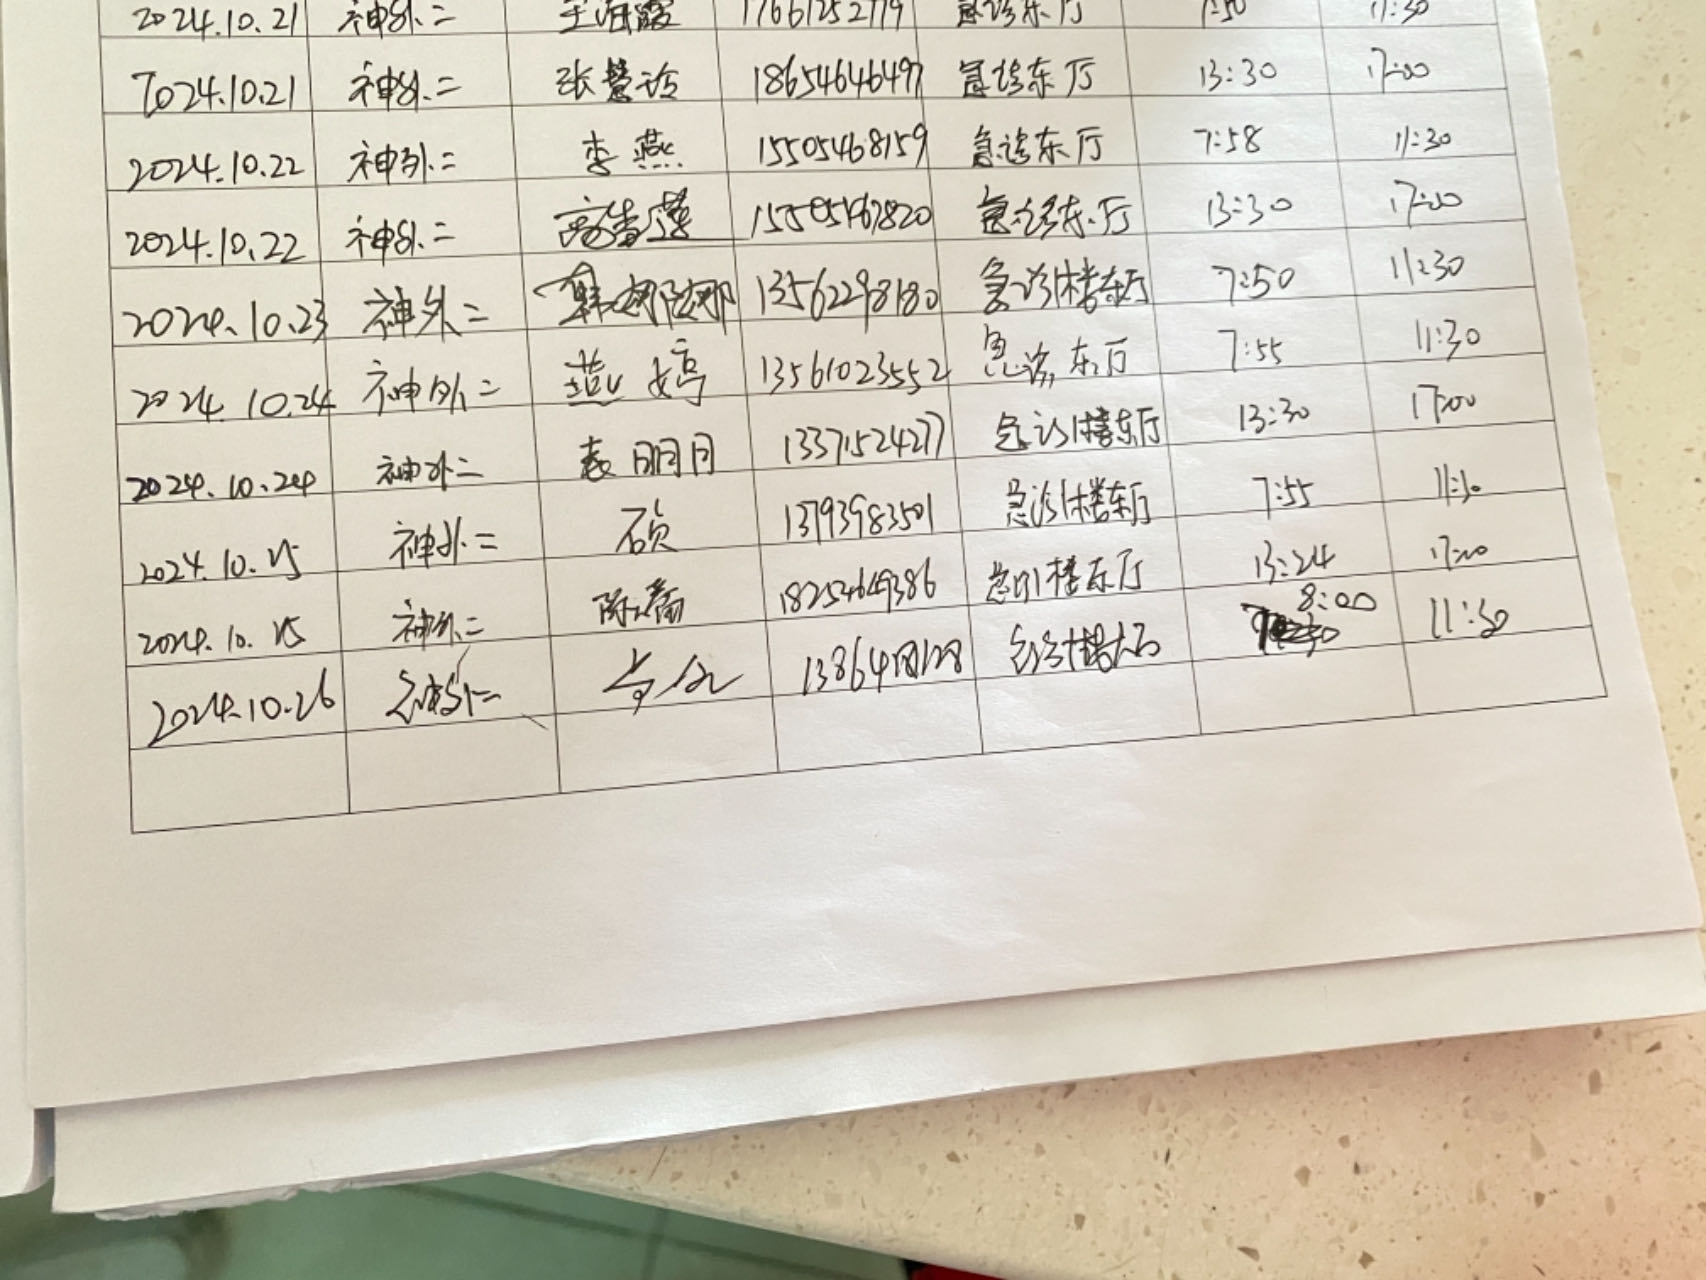 2024.10.21 神外二 17661252779 急诊东厅 7:50 11:30
2024.10.21 神外二 张慧 18654646497 急诊东厅 13:30 17:00
2024.10.22 神外二 李燕 15505468159 急诊东厅 7:58 11:30
2024.10.22 神外二 急诊东厅 13:30 17:00
2024.10.23 神外二 韩娜娜 13562298180 急诊楼东厅 7:50 11:30
2024.10.24 神外二 燕婷 13561023552 急诊东厅 7:55 11:30
2024.10.24 神外二 袁明月 13371524277 急诊楼东厅 13:30 17:00
2024.10.25 神外二 石贞 13793983501 急诊楼东厅 7:55 11:30
2024.10.25 神外二 陈 18254649386 急诊楼东厅 13:24 17:00
2024.10.26 神外二 8:00 11:30